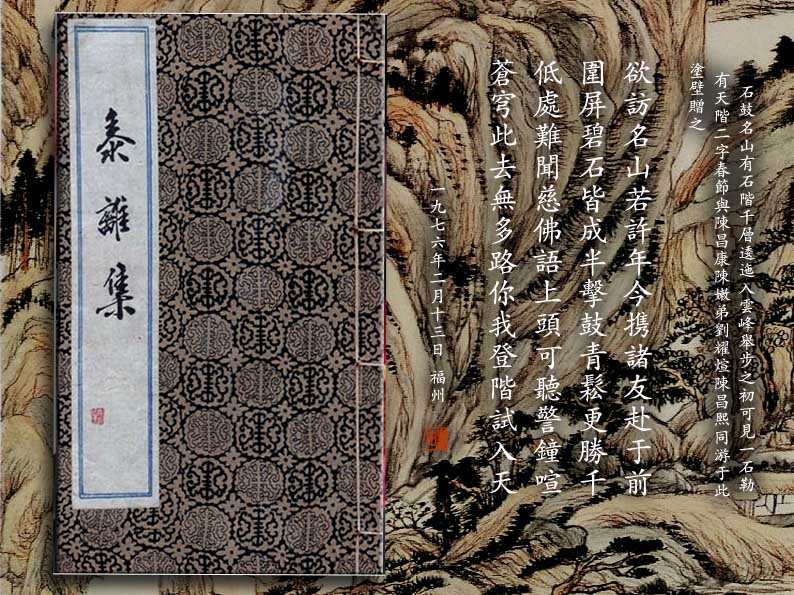 石鼓名山有石階千層逶迤入雲峰舉步之初可見一石勒
有天階二字春節與陳昌康陳嫩弟劉耀煊陳昌熙同游于此
塗壁贈之
欲訪名山若許年今携諸友赴于前
圍屏碧石皆成半擊鼓青鬆更勝千
低處難聞慈佛語上頭可聽警鐘喧
蒼穹此去無多路你我登階試入天
一九七六年二月十三日 福州
黍離集